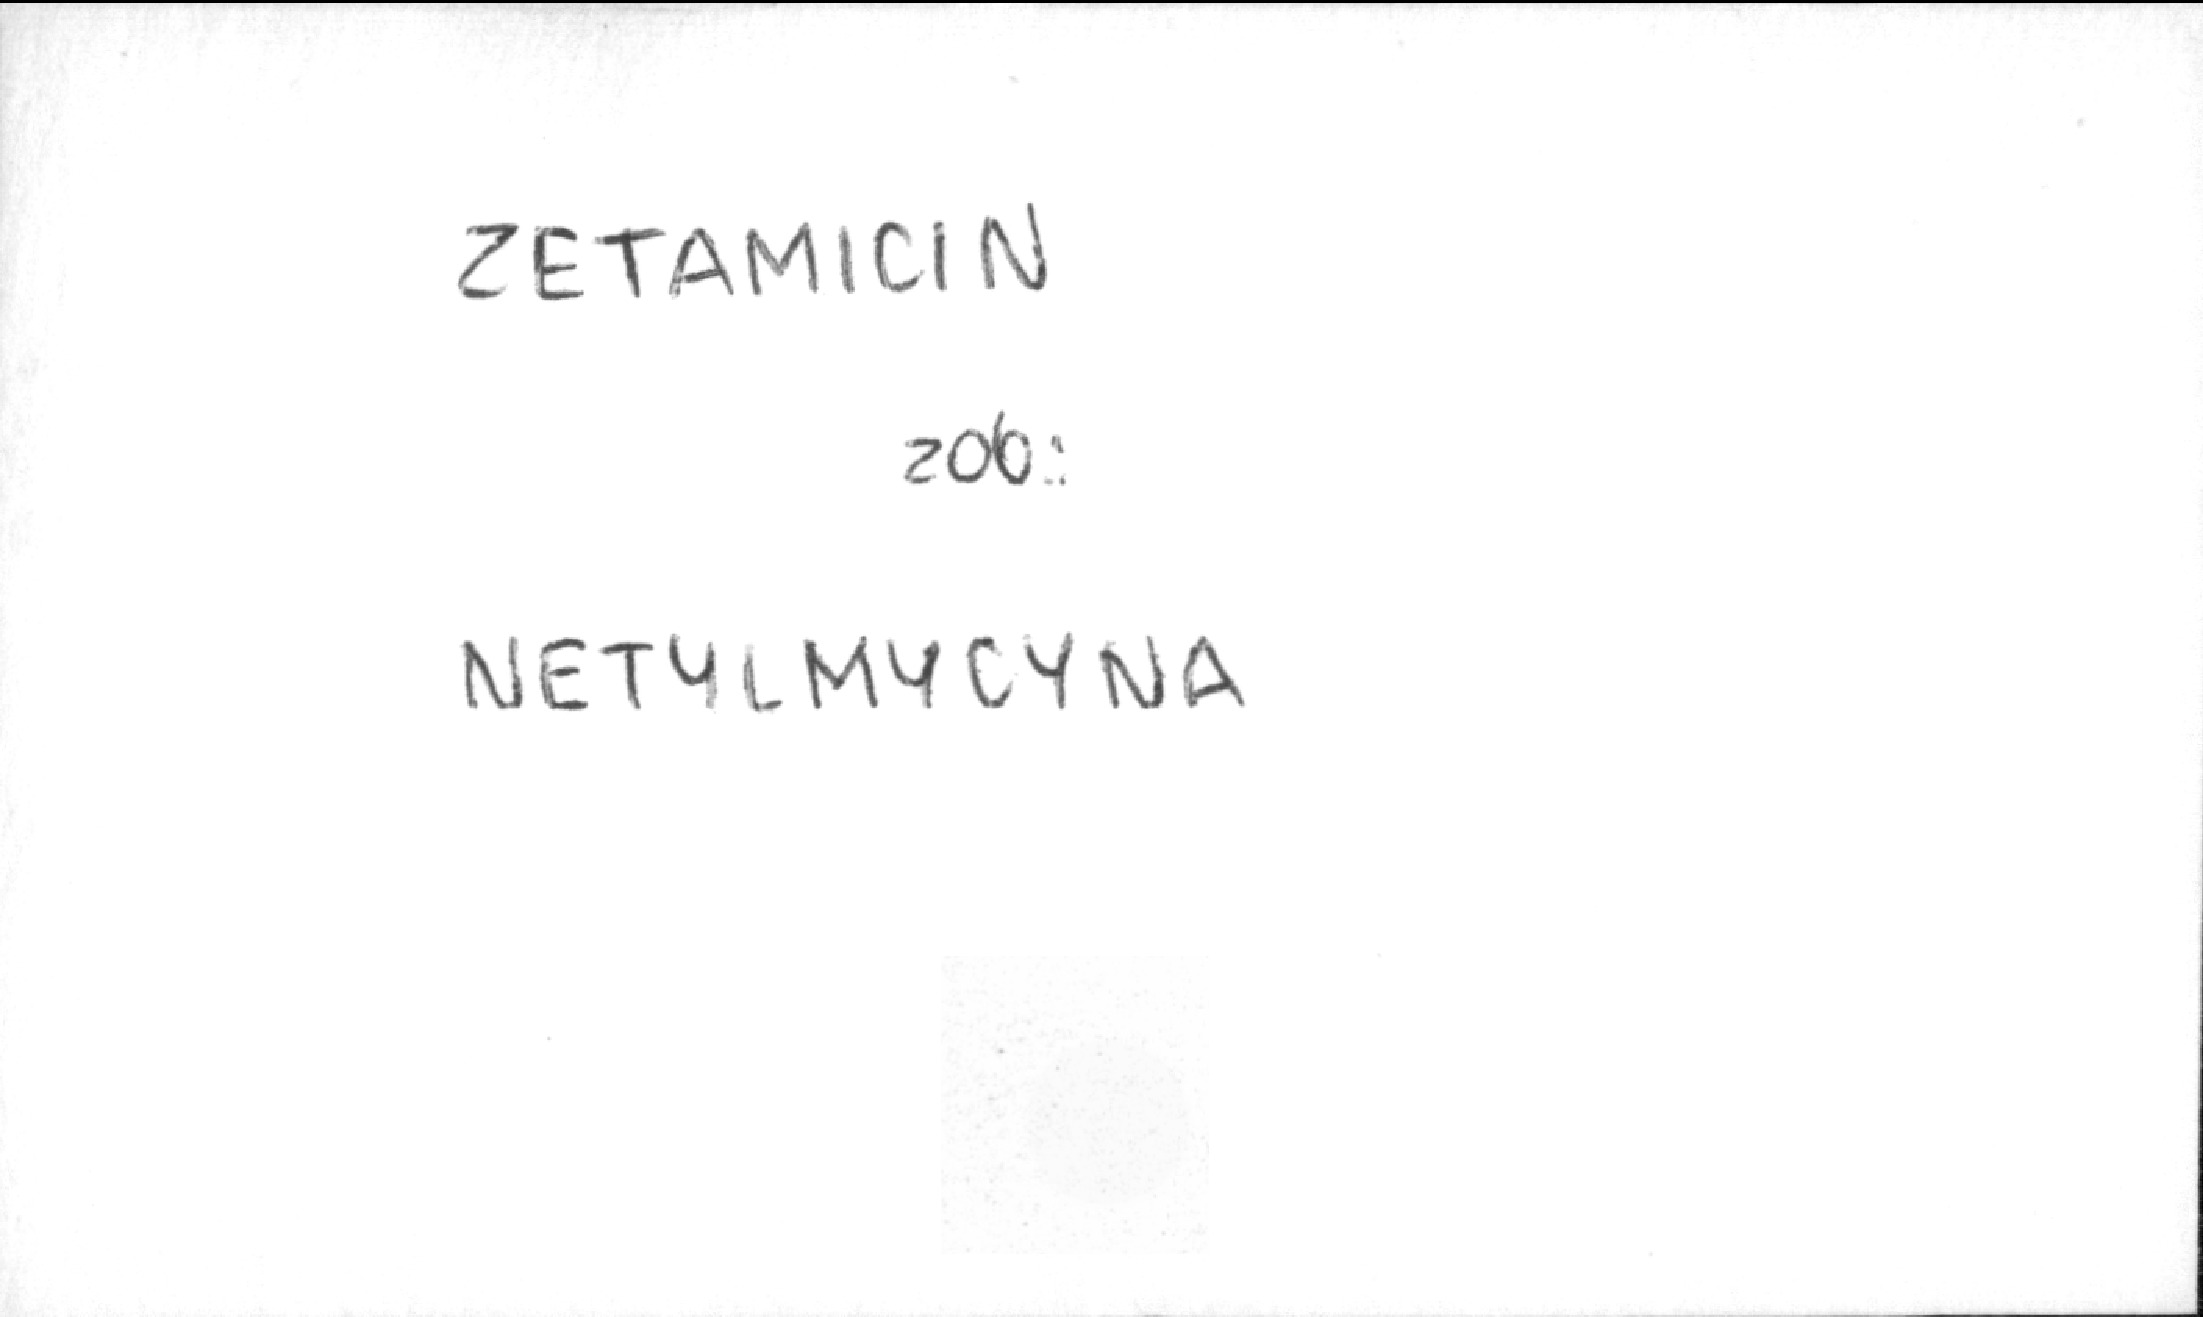 ZETAMICIN
zob.:
NETYLMYCYNA